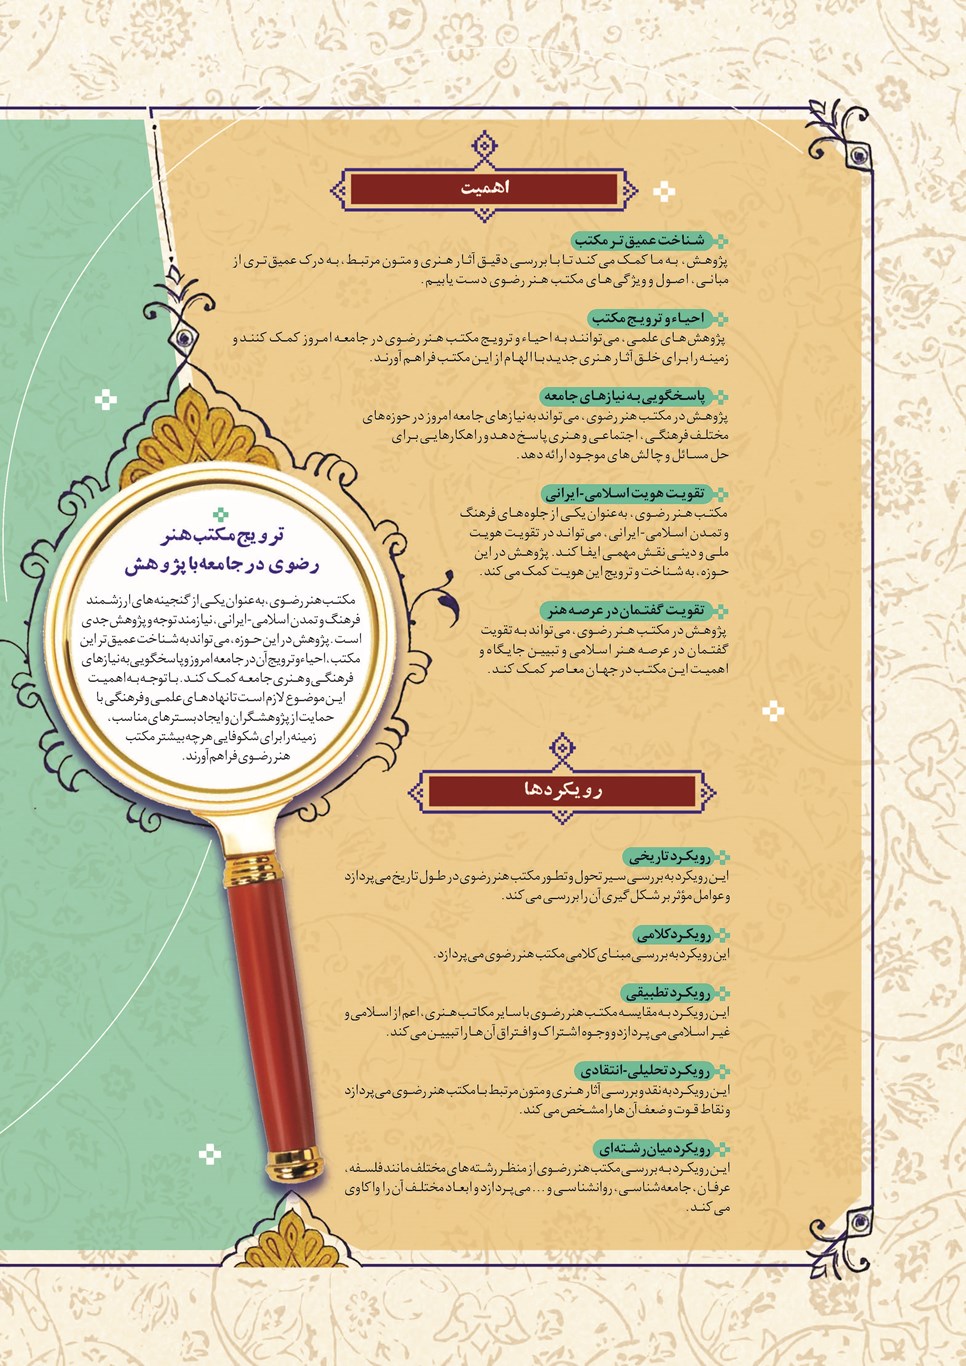 اهمیت
شناخت عمیق‌تر مکتب
پژوهش، به ما کمک می‌کند تا با بررسی دقیق آثار هنری و متون مرتبط، به درک عمیق‌تری از
مبانی، اصول و ویژگی‌های مکتب هنر رضوی دست یابیم.
احیاء و ترویج مکتب
پژوهش‌های علمی، می‌توانند به احیاء و ترویج مکتب هنر رضوی در جامعه امروز کمک کنند و
زمینه را برای خلق آثار هنری جدید با الهام از این مکتب فراهم آورند.
پاسخگویی به نیازهای جامعه
پژوهش در مکتب هنر رضوی، می‌تواند به نیازهای جامعه امروز در حوزه‌های
مختلف فرهنگی، اجتماعی و هنری پاسخ دهد و راهکارهایی برای
حل مسائل و چالش‌های موجود ارائه دهد.
تقویت هویت اسلامی-ایرانی
مکتب هنر رضوی، به‌عنوان یکی از جلوه‌های فرهنگ
و تمدن اسلامی-ایرانی، می‌تواند در تقویت هویت
ملی و دینی نقش مهمی ایفا کند. پژوهش در این
حوزه، به شناخت و ترویج این هویت کمک می‌کند.
تقویت گفتمان در عرصه هنر
پژوهش در مکتب هنر رضوی، می‌تواند به تقویت
گفتمان در عرصه هنر اسلامی و تبیین جایگاه و
اهمیت این مکتب در جهان معاصر کمک کند.
رویکردها
رویکرد تاریخی
این رویکرد به بررسی سیر تحول و تطور مکتب هنر رضوی در طول تاریخ می‌پردازد
و عوامل مؤثر بر شکل‌گیری آن را بررسی می‌کند.
رویکرد کلامی
این رویکرد به بررسی مبنای کلامی مکتب هنر رضوی می‌پردازد.
رویکرد تطبیقی
این رویکرد به مقایسه مکتب هنر رضوی با سایر مکاتب هنری، اعم از اسلامی و
غیر اسلامی می‌پردازد و وجوه اشتراک و افتراق آن‌ها را تبیین می‌کند.
رویکرد تحلیلی-انتقادی
این رویکرد به نقد و بررسی آثار هنری و متون مرتبط با مکتب هنر رضوی می‌پردازد
و نقاط قوت و ضعف آن‌ها را مشخص می‌کند.
رویکرد میان‌رشته‌ای
این رویکرد به بررسی مکتب هنر رضوی از منظر رشته‌های مختلف مانند فلسفه،
عرفان، جامعه‌شناسی، روانشناسی و... می‌پردازد و ابعاد مختلف آن را واکاوی
می‌کند.
ترویج مکتب هنر
رضوی در جامعه با پژوهش
مکتب هنر رضوی، به‌عنوان یکی از گنجینه‌های ارزشمند
فرهنگ و تمدن اسلامی-ایرانی، نیازمند توجه و پژوهش جدی
است. پژوهش در این حوزه، می‌تواند به شناخت عمیق‌تر این
مکتب، احیاء و ترویج آن در جامعه امروز و پاسخگویی به نیازهای
فرهنگی و هنری جامعه کمک کند. با توجه به اهمیت
این موضوع لازم است تا نهادهای علمی و فرهنگی با
حمایت از پژوهشگران و ایجاد بسترهای مناسب،
زمینه را برای شکوفایی هرچه بیشتر مکتب
هنر رضوی فراهم آورند.